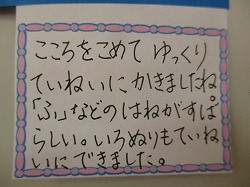 こころをこめて ゆっくり
ていねいにかきましたね
「ふ」などのはねがすば
らしい。いろぬりもていね
いにできました。